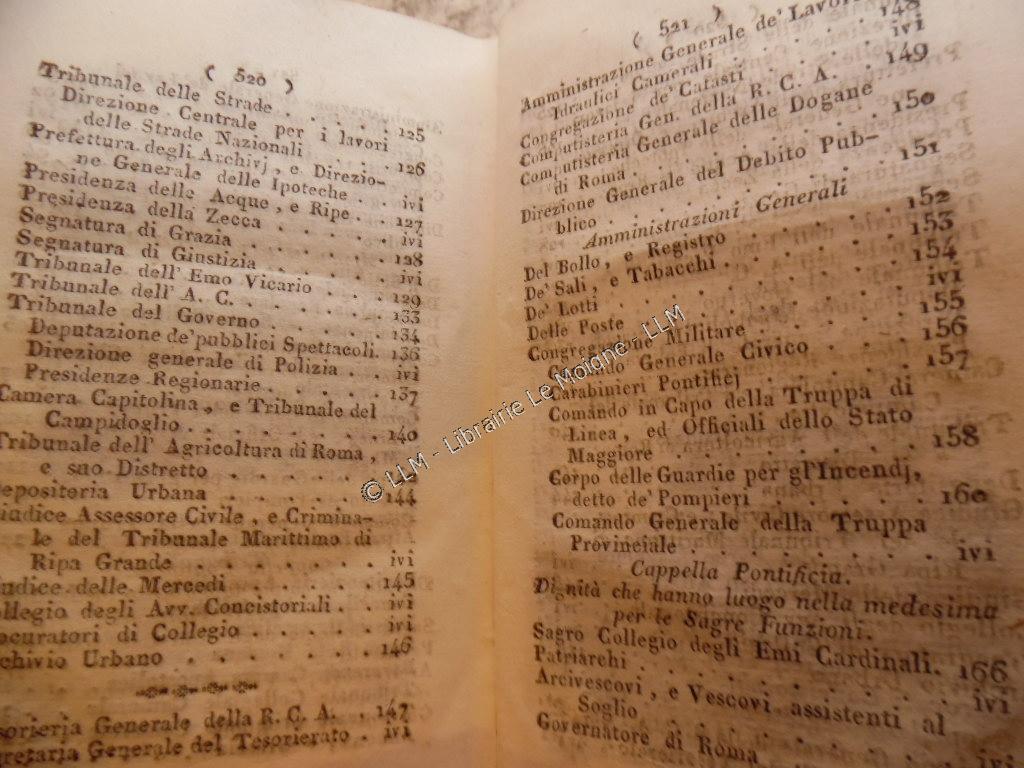 ( 520 )
Tribunale delle Strade . . . . . 125
Direzione Centrale per i lavori
delle Strade Nazionali . . . . 126
Prefettura degli Archivj, e Direzio-
ne Generale delle Ipoteche . . ivi
Presidenza delle Acque, e Ripe . . 127
Presidenza della Zecca . . . . . ivi
Segnatura di Grazia . . . . . . 128
Segnatura di Giustizia . . . . . ivi
Tribunale dell' Emo Vicario . . . 129
Tribunale dell' A. C. . . . . . . 133
Tribunale del Governo . . . . . 134
Deputazione de' pubblici Spettacoli. 136
Direzione generale di Polizia . . ivi
Presidenze Regionarie . . . . . 137
Camera Capitolina, e Tribunale del
Campidoglio . . . . . . . . 140
Tribunale dell' Agricoltura di Roma,
e suo Distretto . . . . . .
epositeria Urbana . . . . . . . 144
iudice Assessore Civile, e Crimina-
le del Tribunale Marittimo di
Ripa Grande . . . . . . . . ivi
iudice delle Mercedi . . . . . . 145
ollegio degli Avv. Concistoriali . . ivi
ocuratori di Collegio . . . . . . ivi
chivio Urbano . . . . . . . . 146
sorieria Generale della R. C. A. . 147
gretaria Generale del Tesorierato . ivi
( 521 )
Amministrazione Generale de' Lavori 148
Idraulici Camerali . . . . . . ivi
Congregazione de' Catasti . . . . 149
Computisteria Gen. della R. C. A.
Computisteria Generale delle Dogane
di Roma . . . . . . . . . . 150
Direzione Generale del Debito Pub-
blico . . . . . . . . . . . 151
Amministrazioni Generali
Del Bollo, e Registro . . . . . 152
De' Sali, e Tabacchi . . . . . . 153
De' Lotti . . . . . . . . . . 154
Delle Poste . . . . . . . . . ivi
Congregazione Militare . . . . . 155
Comando Generale Civico . . . . 156
Carabinieri Pontificj . . . . . . 157
Comando in Capo della Truppa di
Linea, ed Officiali dello Stato
Maggiore . . . . . . . . . 158
Corpo delle Guardie per gl'Incendj,
detto de' Pompieri . . . . . . 160
Comando Generale della Truppa
Provinciale . . . . . . . . . ivi
Cappella Pontificia.
Dignità che hanno luogo nella medesima
per le Sagre Funzioni.
Sagro Collegio degli Emi Cardinali. 166
Patriarchi . . . . . . . . . . ivi
Arcivescovi, e Vescovi assistenti al
Soglio . . . . . . . . . . ivi
Governatore di Roma
© LLM - Librairie Le Moigne - LLM